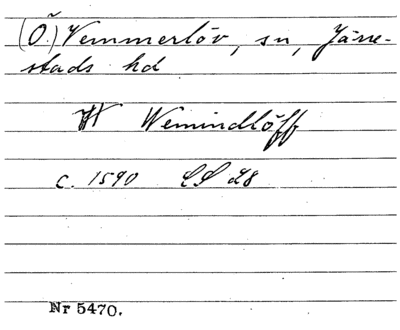 (Ö.) Vemmerlöv, sn, Järre-
stads hd
W Wemindlöff
c. 1590 LS 28
Nr 5470.